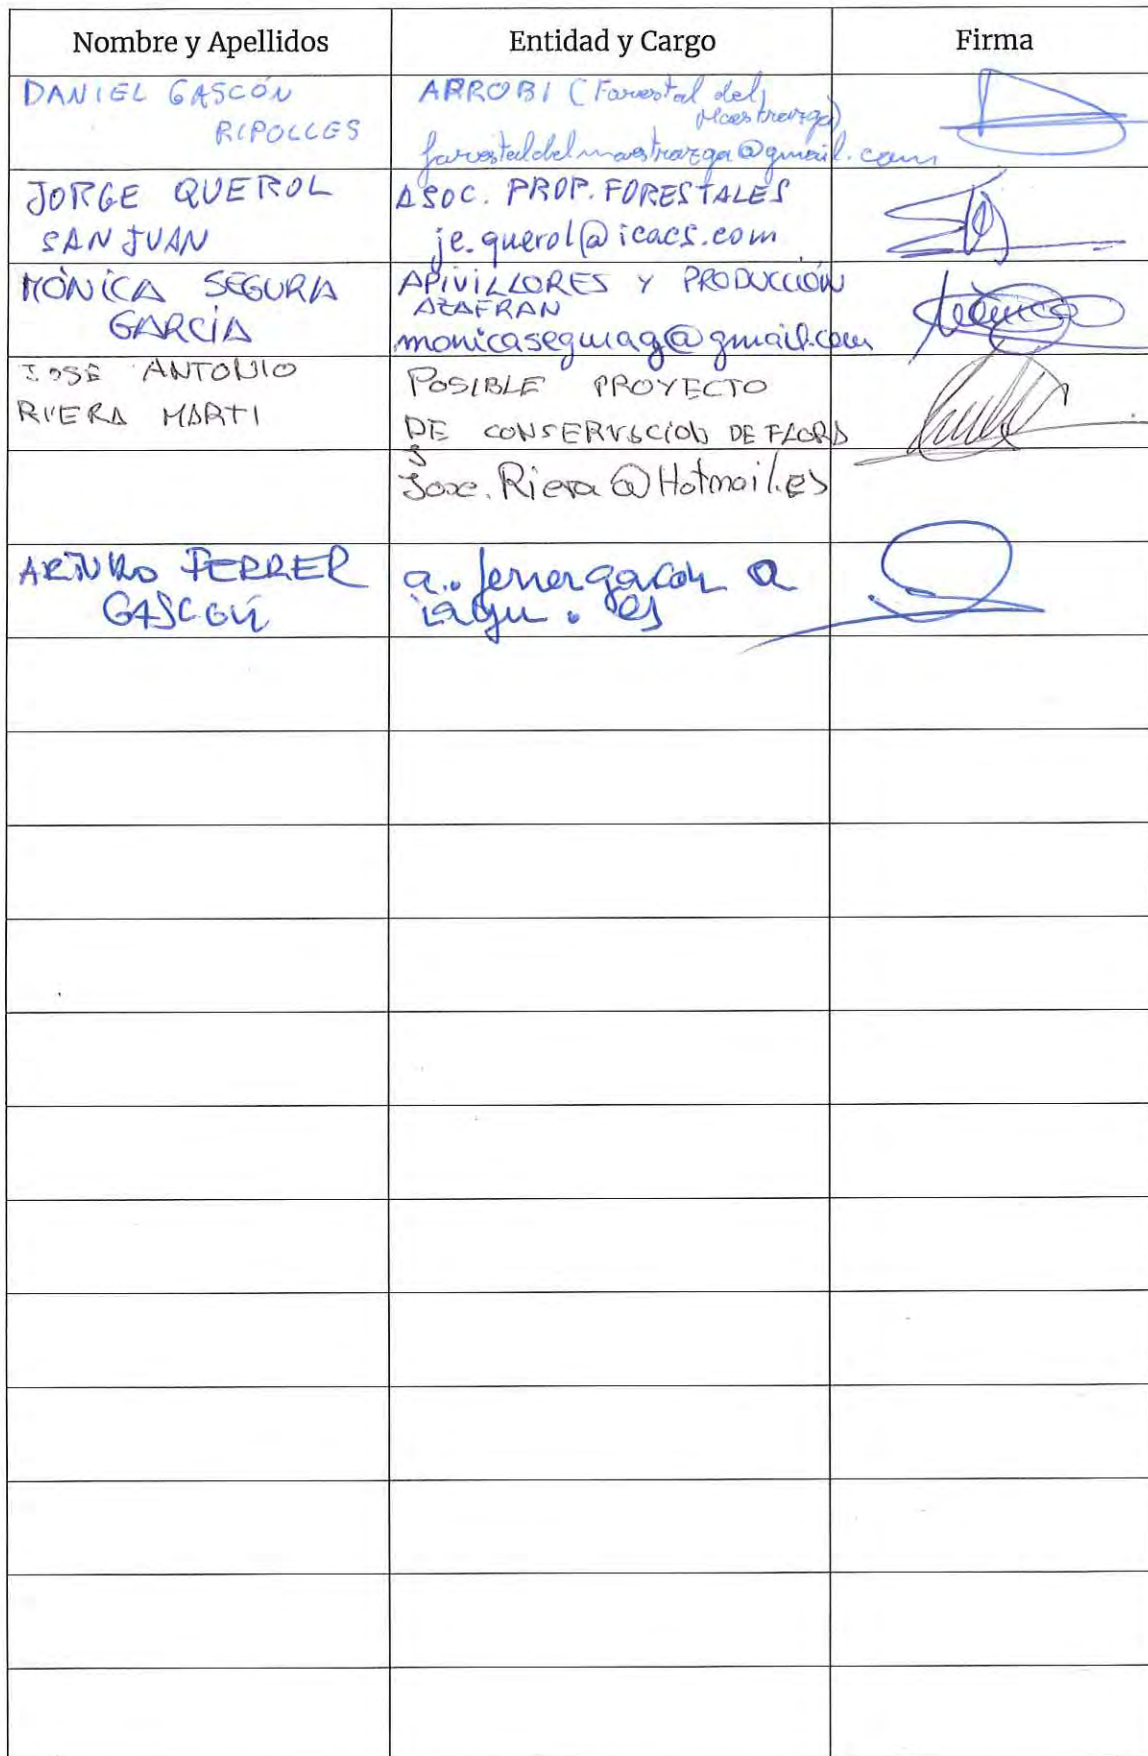 Nombre y Apellidos Entidad y Cargo Firma
DANIEL GASCÓN
RIPOLLES
ARROBI (Forestal del
Maestrazgo)
forestaldelmaestrazgo@gmail.com
JORGE QUEROL
SANJUAN
ASOC. PROP. FORESTALES
je.querol@icacs.com
MÒNICA SEGURA
GARCÍA
APIVILLORES Y PRODUCCIÓN
AZAFRAN
monicaseguag@gmail.com
JOSE ANTONIO
RIERA MARTI
POSIBLE PROYECTO
DE CONSERVACION DE FLORA
Jose.Riera@Hotmail.es
ARTURO FERRER
GASCÓN